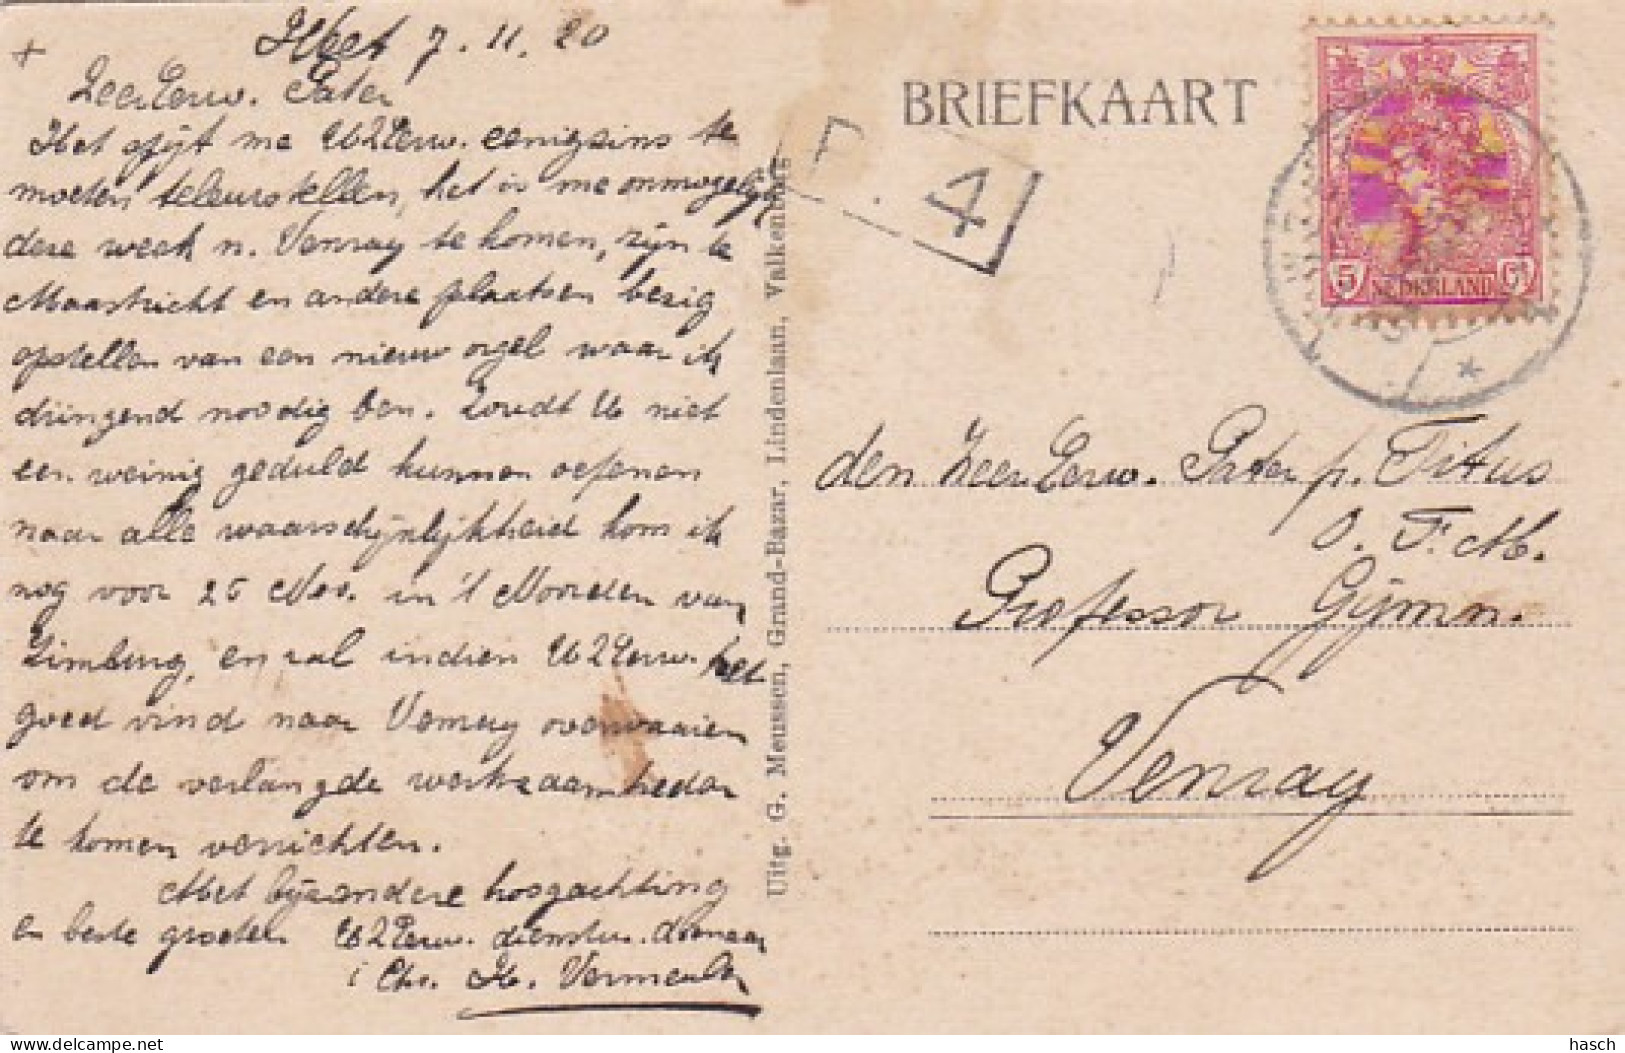 7.11.20
ZeerEerw. Pater
Het spijt me UZEerw. eenigsins te
moeten teleurstellen, het is me onmogelijk
dere week n. Venray te komen, zijn te
Maastricht en andere plaatsen bezig
opstellen van een nieuw orgel waar ik
dringend noodig ben. Zoudt U niet
een weinig geduld kunnen oefenen
naar alle waarschijnlijkheid kom ik
nog voor 25 Nov. in 't Noorden van
Limburg, en zal indien UZEerw. het
goed vind naar Venray overwaaien
om de verlangde werkzaamheden
te komen verrichten.
Met bijzondere hoogachting
en beste groeten UZEerw. dienstw. dienaar
i Chr. H. Vermeulen
Uitg. G. Meussen, Grand-Bazar, Lindenlaan, Valkenburg
BRIEFKAART
4
5 NEDERLAND 5
den ZeerEerw. Pater p. Titus
O. F. M.
Professor Gijmn.
Venray
© www.delcampe.net
hasch